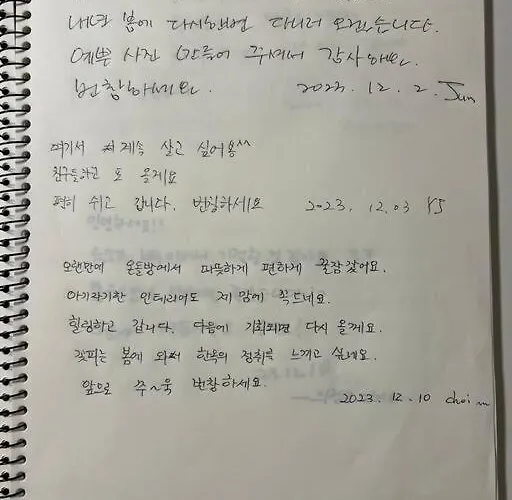 내년 봄에 다시한번 다니러 오겠습니다.
예쁜 사진 만들어 주셔서 감사해요.
번창하세요. 2023. 12. 2. Jun
여기서 계속 살고 싶어용^^
친구들하고 또 올게요
편히 쉬고 갑니다. 번창하세요 2023. 12.03 YJ
오랜만에 온돌방에서 따뜻하게 편하게 꿀잠잤어요.
아기자기한 인테리어도 제 맘에 쏙드네요.
힐링하고 갑니다. 다음에 기회되면 다시 올게요.
꽃피는 봄에 와서 한옥의 정취를 느끼고 싶네요.
앞으로 쭈~욱 번창하세요.
2023. 12. 10 choi